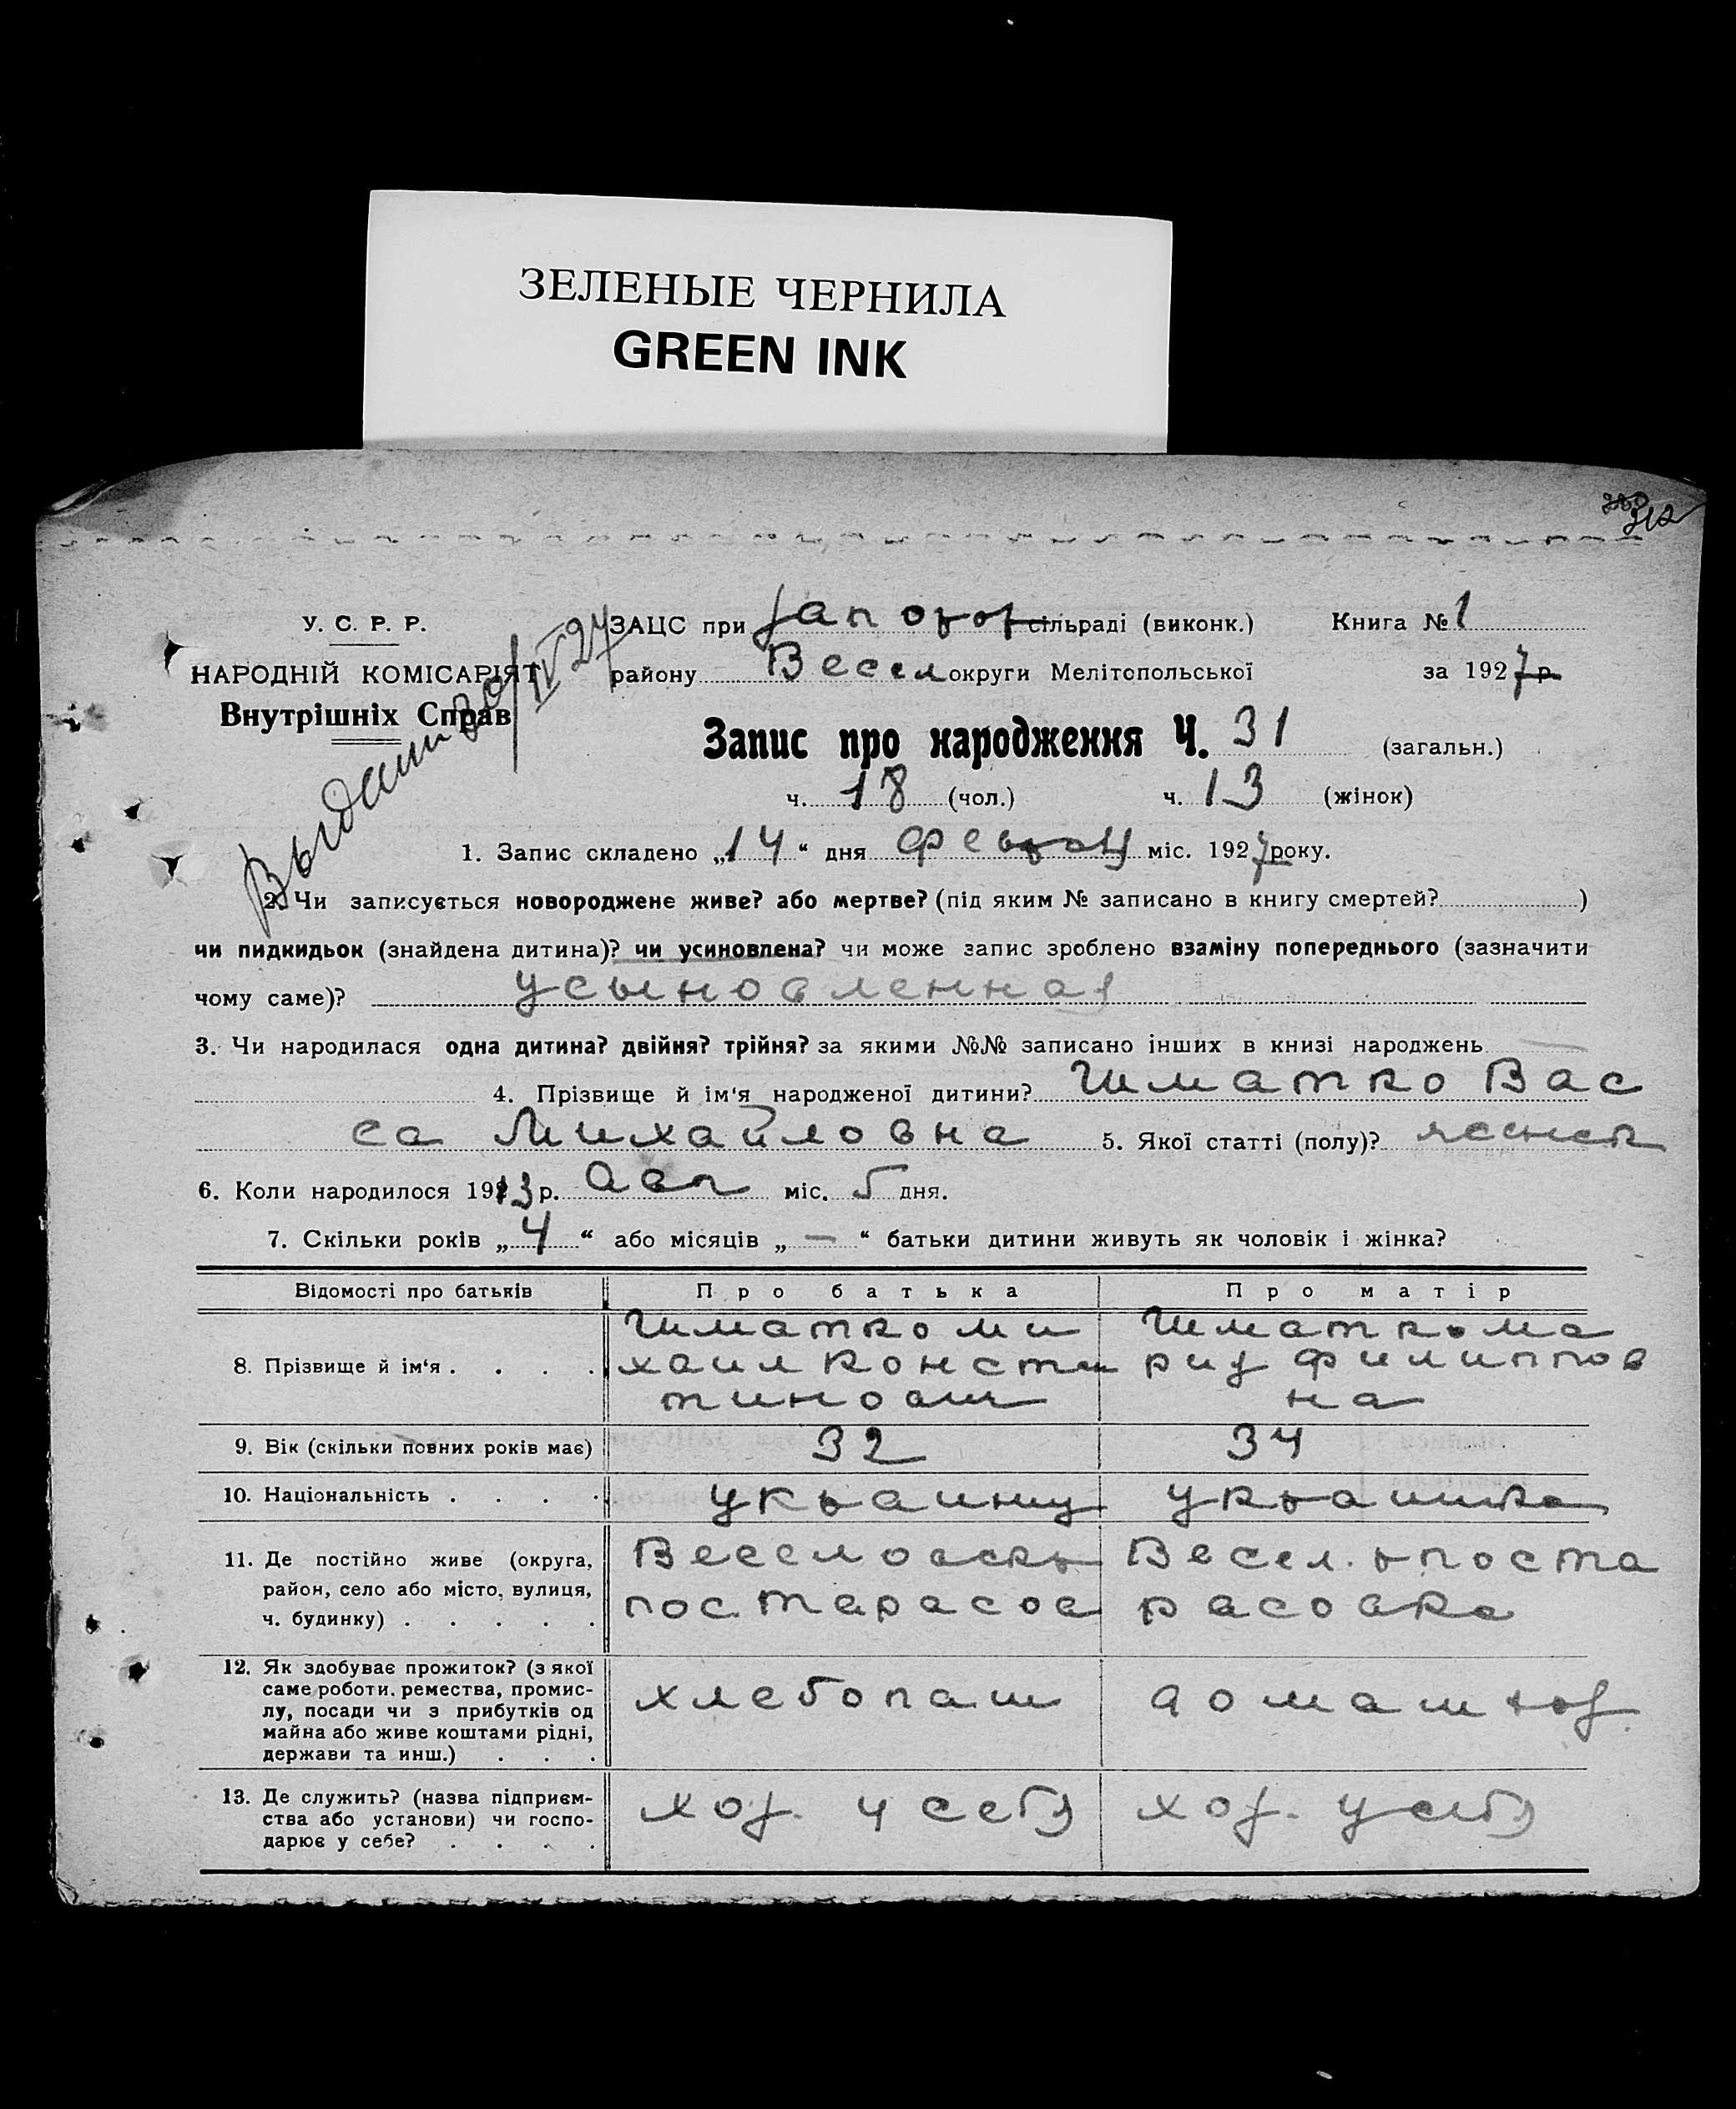 ЗЕЛЕНЫЕ ЧЕРНИЛА
GREEN INK
312
У. С. Р. Р.
НАРОДНІЙ КОМІСАРІЯТ
Внутрішніх Справ
ЗАЦС при сільраді (виконк.) Книга № 1
району Весел округи Мелітопольської за 1927 р.
Запис про народження Ч. 31 (загальн.)
ч. 18 (чол.) ч. 13 (жінок)
1. Запис складено „14“ дня міс. 1927 року.
2. Чи записується новороджене живе? або мертве? (під яким № записано в книгу смертей? )
чи пидкидьок (знайдена дитина)? чи усиновлена? чи може запис зроблено взаміну попереднього (зазначити
чому саме)? усыновленная
3. Чи народилася одна дитина? двійня? трійня? за якими №№ записано інших в книзі народжень —
4. Прізвище й ім‘я народженої дитини? Шматко Вас
са Михайловна 5. Якої статті (полу)?
6. Коли народилося 1913 р. Авг міс. 5 дня.
7. Скільки років „4“ або місяців „—“ батьки дитини живуть як чоловік і жінка?
Відомості про батьків Про батька Про матір
8. Прізвище й ім‘я . . . .
Шматко Ми
хаил Консти
тинович
Шматко Ма
рия Филиппов
на
9. Вік (скільки повних років має) 32 34
10. Національність . . . . украинец украинка
11. Де постійно живе (округа,
район, село або місто, вулиця,
ч. будинку) . . . . .
Весел. р пос та
расовка
12. Як здобуває прожиток? (з якої
саме роботи, ремества, промис-
лу, посади чи з прибутків од
майна або живе коштами рідні,
держави та инш.) . . .
хлебопаш
13. Де служить? (назва підприєм-
ства або установи) чи госпо-
дарює у себе? . . . .
хоз. у себя
хоз. у себя